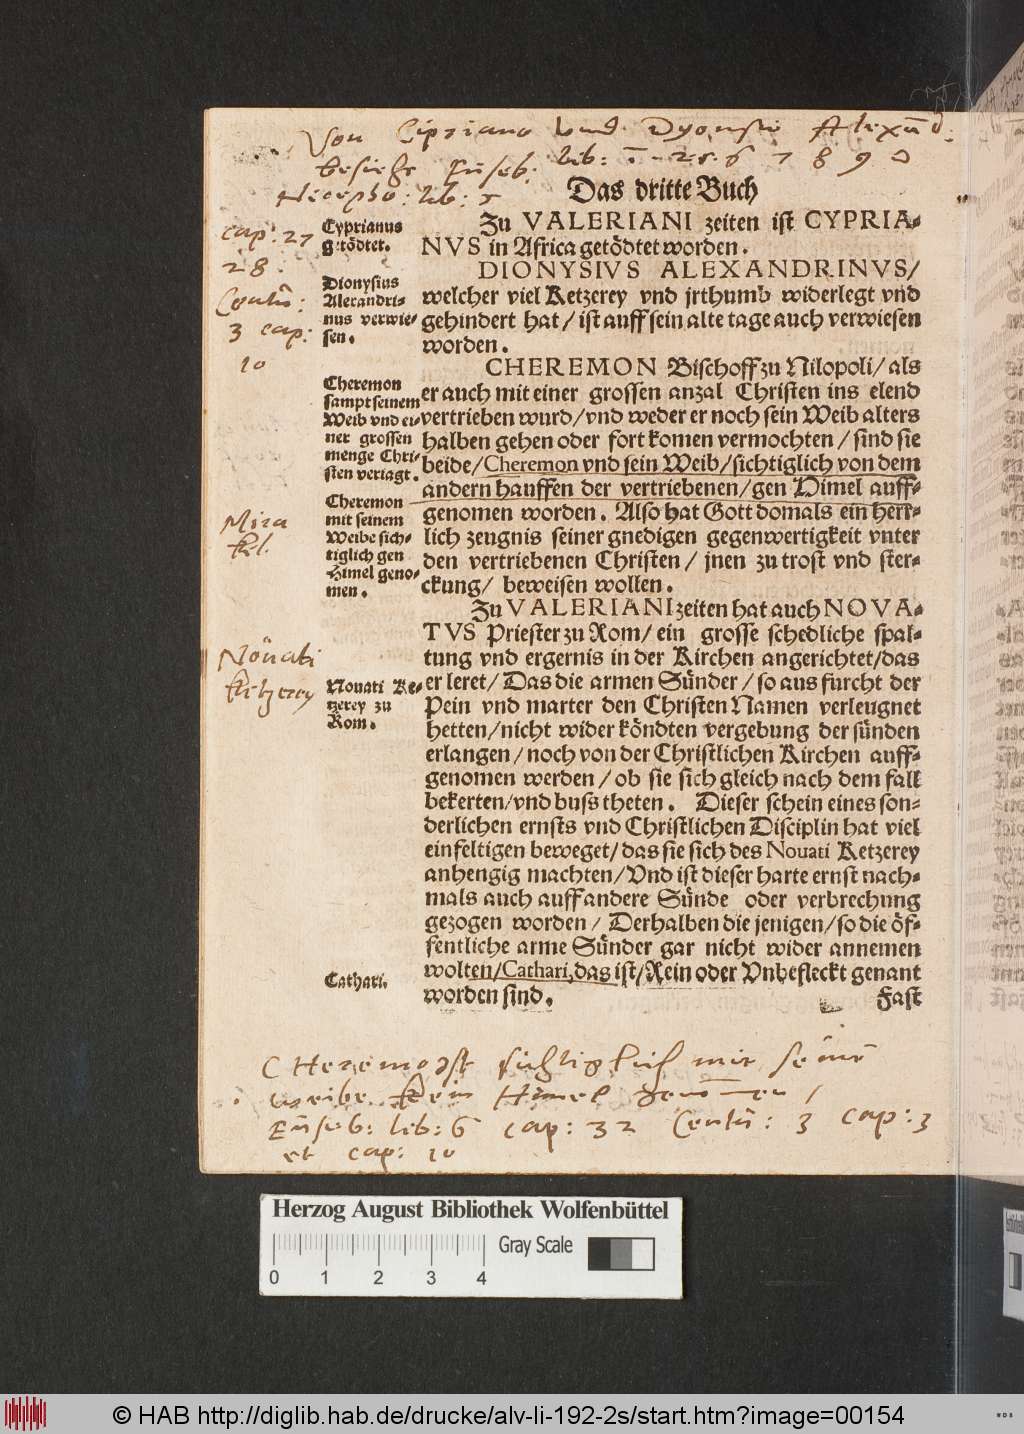 Von Cipriano vnd Dyonisio Alexād:
besiehe Euseb: lib: 6 7 8 9
Nicepho: lib: 5
cap: 27
28
Centu:
3 cap:
10
Das dritte Buch
Cyprianus
getödtet.
Zu VALERIANI zeiten ist CYPRIA-
NVS in Africa getödtet worden.
Dionysius
Alexandri-
nus verwie-
sen.
DIONYSIVS ALEXANDRINVS/
welcher viel Ketzerey vnd jrthumb widerlegt vnd
gehindert hat/ ist auff sein alte tage auch verwiesen
worden.
Cheremon
sampt seinem
Weib vnd ei-
ner grossen
menge Chri-
sten veriagt.
CHEREMON Bischoff zu Nilopoli/ als
er auch mit einer grossen anzal Christen ins elend
vertrieben wurd/ vnd weder er noch sein Weib alters
halben gehen oder fort komen vermochten/ sind sie
beide/ Cheremon vnd sein Weib/ sichtiglich von dem
andern hauffen der vertriebenen/ gen Himel auff-
genomen worden. Also hat Gott domals ein herr-
lich zeugnis seiner gnedigen gegenwertigkeit vnter
den vertriebenen Christen/ jnen zu trost vnd ster-
ckung/ beweisen wollen.
Cheremon
mit seinem
Weibe sich-
tiglich gen
Himel geno-
men.
Mira
kel.
Zu VALERIANI zeiten hat auch NOVA-
TVS Priester zu Rom/ ein grosse schedliche spal-
tung vnd ergernis in der Kirchen angerichtet/ das
er leret/ Das die armen Sünder/ so aus furcht der
Pein vnd marter den Christen Namen verleugnet
hetten/ nicht wider köndten vergebung der sünden
erlangen/ noch von der Christlichen Kirchen auff-
genomen werden/ ob sie sich gleich nach dem fall
bekerten/ vnd buss theten. Dieser schein eines son-
derlichen ernsts vnd Christlichen Disciplin hat viel
einfeltigen beweget/ das sie sich des Nouati Ketzerey
anhengig machten/ Vnd ist dieser harte ernst nach-
mals auch auff andere Sünde oder verbrechung
gezogen worden/ Derhalben die jenigen/ so die öf-
fentliche arme Sünder gar nicht wider annemen
wolten/ Cathari, das ist/ Rein oder Vnbefleckt genant
worden sind.
Nouati
ketzerey
Nouati Ke-
tzerey zu
Rom.
Cathari.
Fast
Cheremon ist sichtiglich mit seinē
weibe kein Himel genomen/
Euseb: lib: 6 cap: 32 Centu: 3 cap: 3
et cap: 10
Herzog August Bibliothek Wolfenbüttel
Gray Scale
0 1 2 3 4
© HAB http://diglib.hab.de/drucke/alv-li-192-2s/start.htm?image=00154